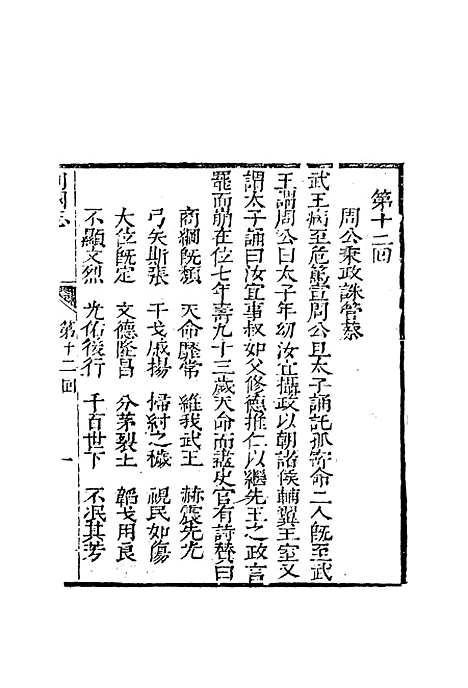 第十二回
周公秉政誅管蔡
武王病至危篤宣周公旦太子誦託孤寄命二人既至武
王謂周公曰太子年幼汝宜攝政以朝諸侯輔翼王室又
謂太子誦曰汝宜事叔如父修德推仁以繼先王之政言
罷而崩在位七年壽九十三歲天命而盡史官有詩贊曰
商綱既頹 天命歷常 維我武王 赫震先光
弓矢斯張 干戈戚揚 掃紂之穢 視民如傷
大位既定 文德隆昌 分茅裂土 韜戈用良
不顯文烈 光佑後行 千百世下 不泯其芳
列國志 第十二回 一